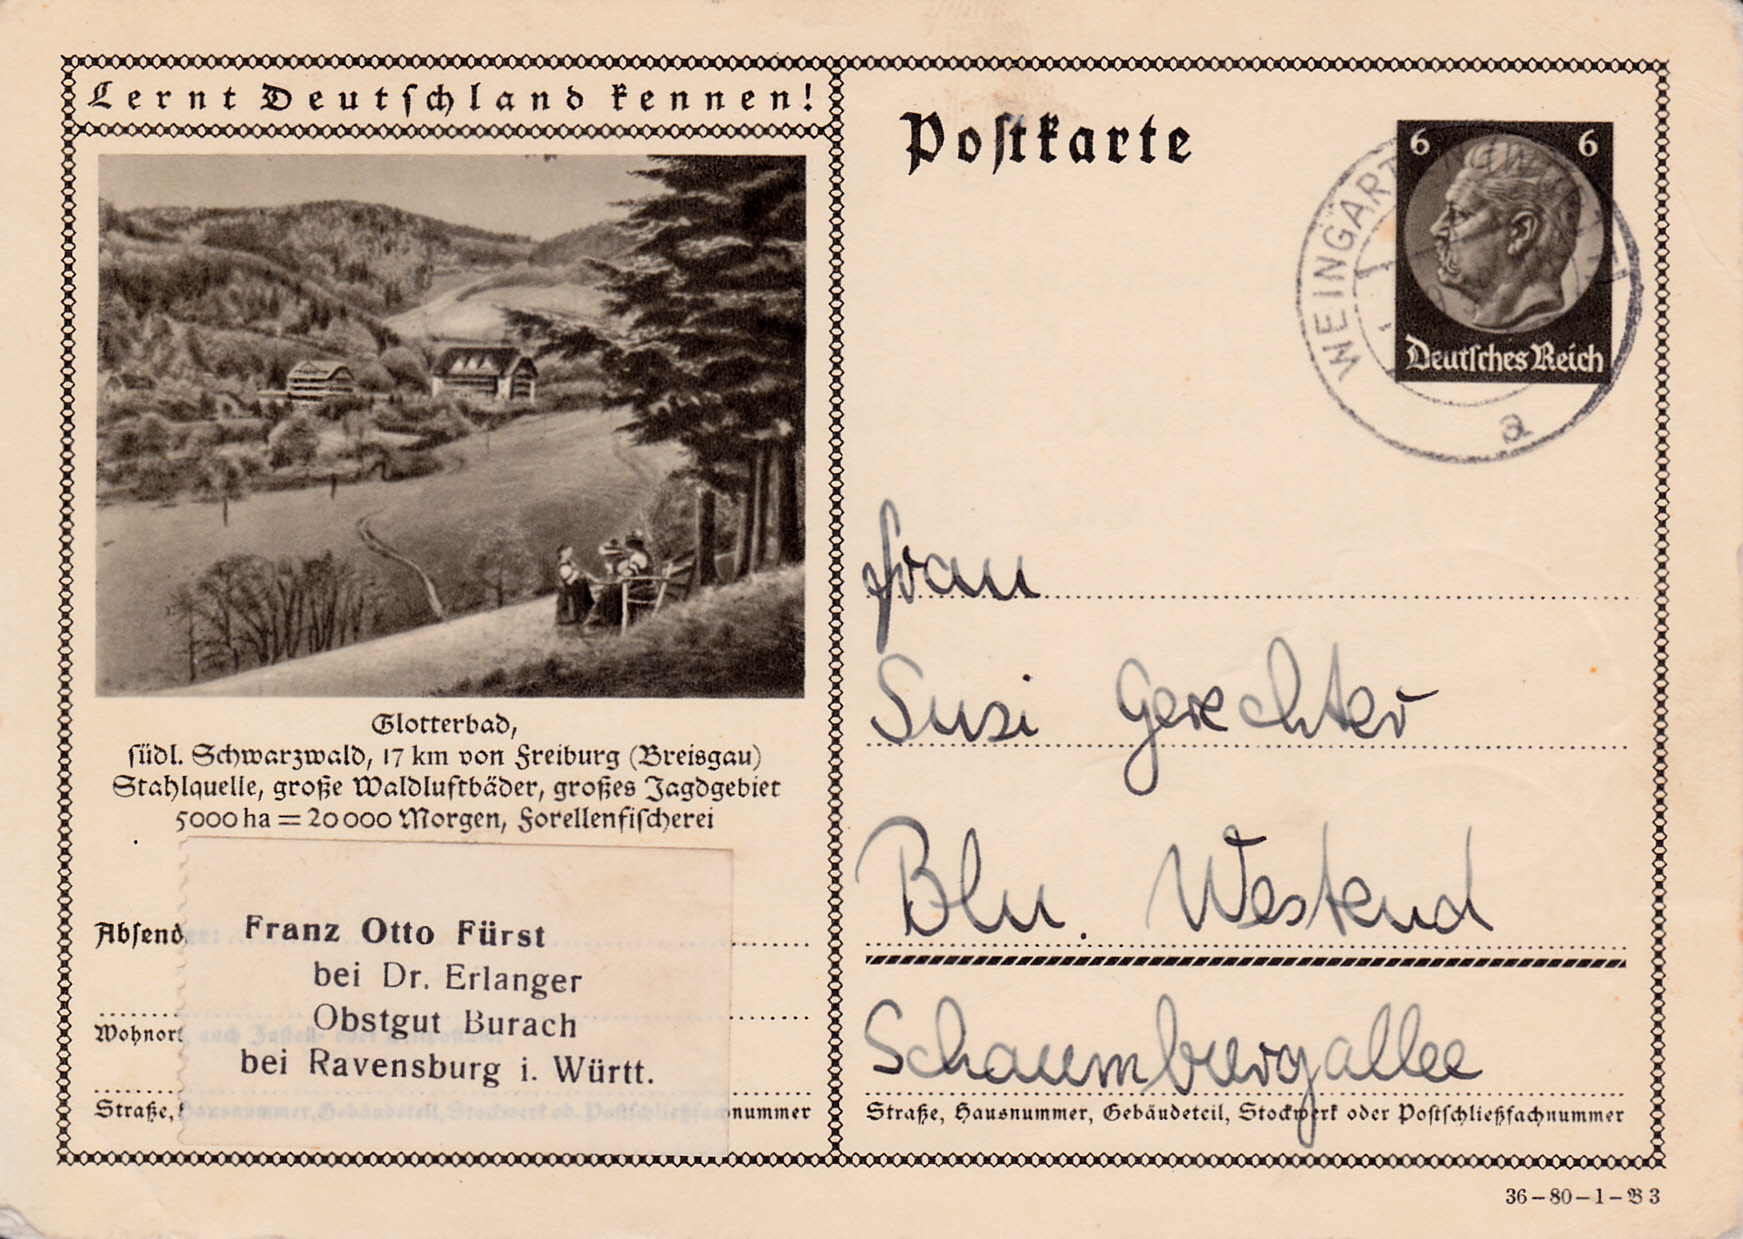 Lernt Deutschland kennen!
Glotterbad,
südl. Schwarzwald, 17 km von Freiburg (Breisgau)
Stahlquelle, große Waldluftbäder, großes Jagdgebiet
5000 ha = 20000 Morgen, Forellenfischerei
Absender:
Franz Otto Fürst
bei Dr. Erlanger
Obstgut Burach
bei Ravensburg i. Württ.
Wohnort, auch Zustell- oder Leitpostamt
Straße, Hausnummer, Gebäudeteil, Stockwerk od. Postschließfachnummer
Postkarte
6 6
Deutsches Reich
WEINGARTEN
a
Frau
Susi Gerechter
Bln. Westend
Schaumburgallee
Straße, Hausnummer, Gebäudeteil, Stockwerk oder Postschließfachnummer
36-80-1-B3